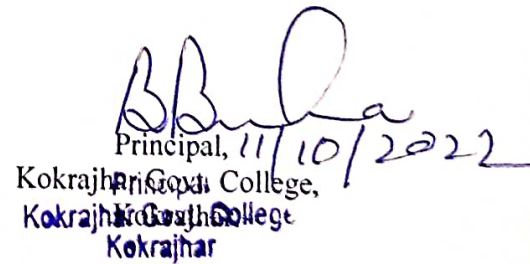 Principal, 11/10/2022
Kokrajhar Govt. College,
Kokrajhar
Principal
Kokrajhar Govt. College
Kokrajhar